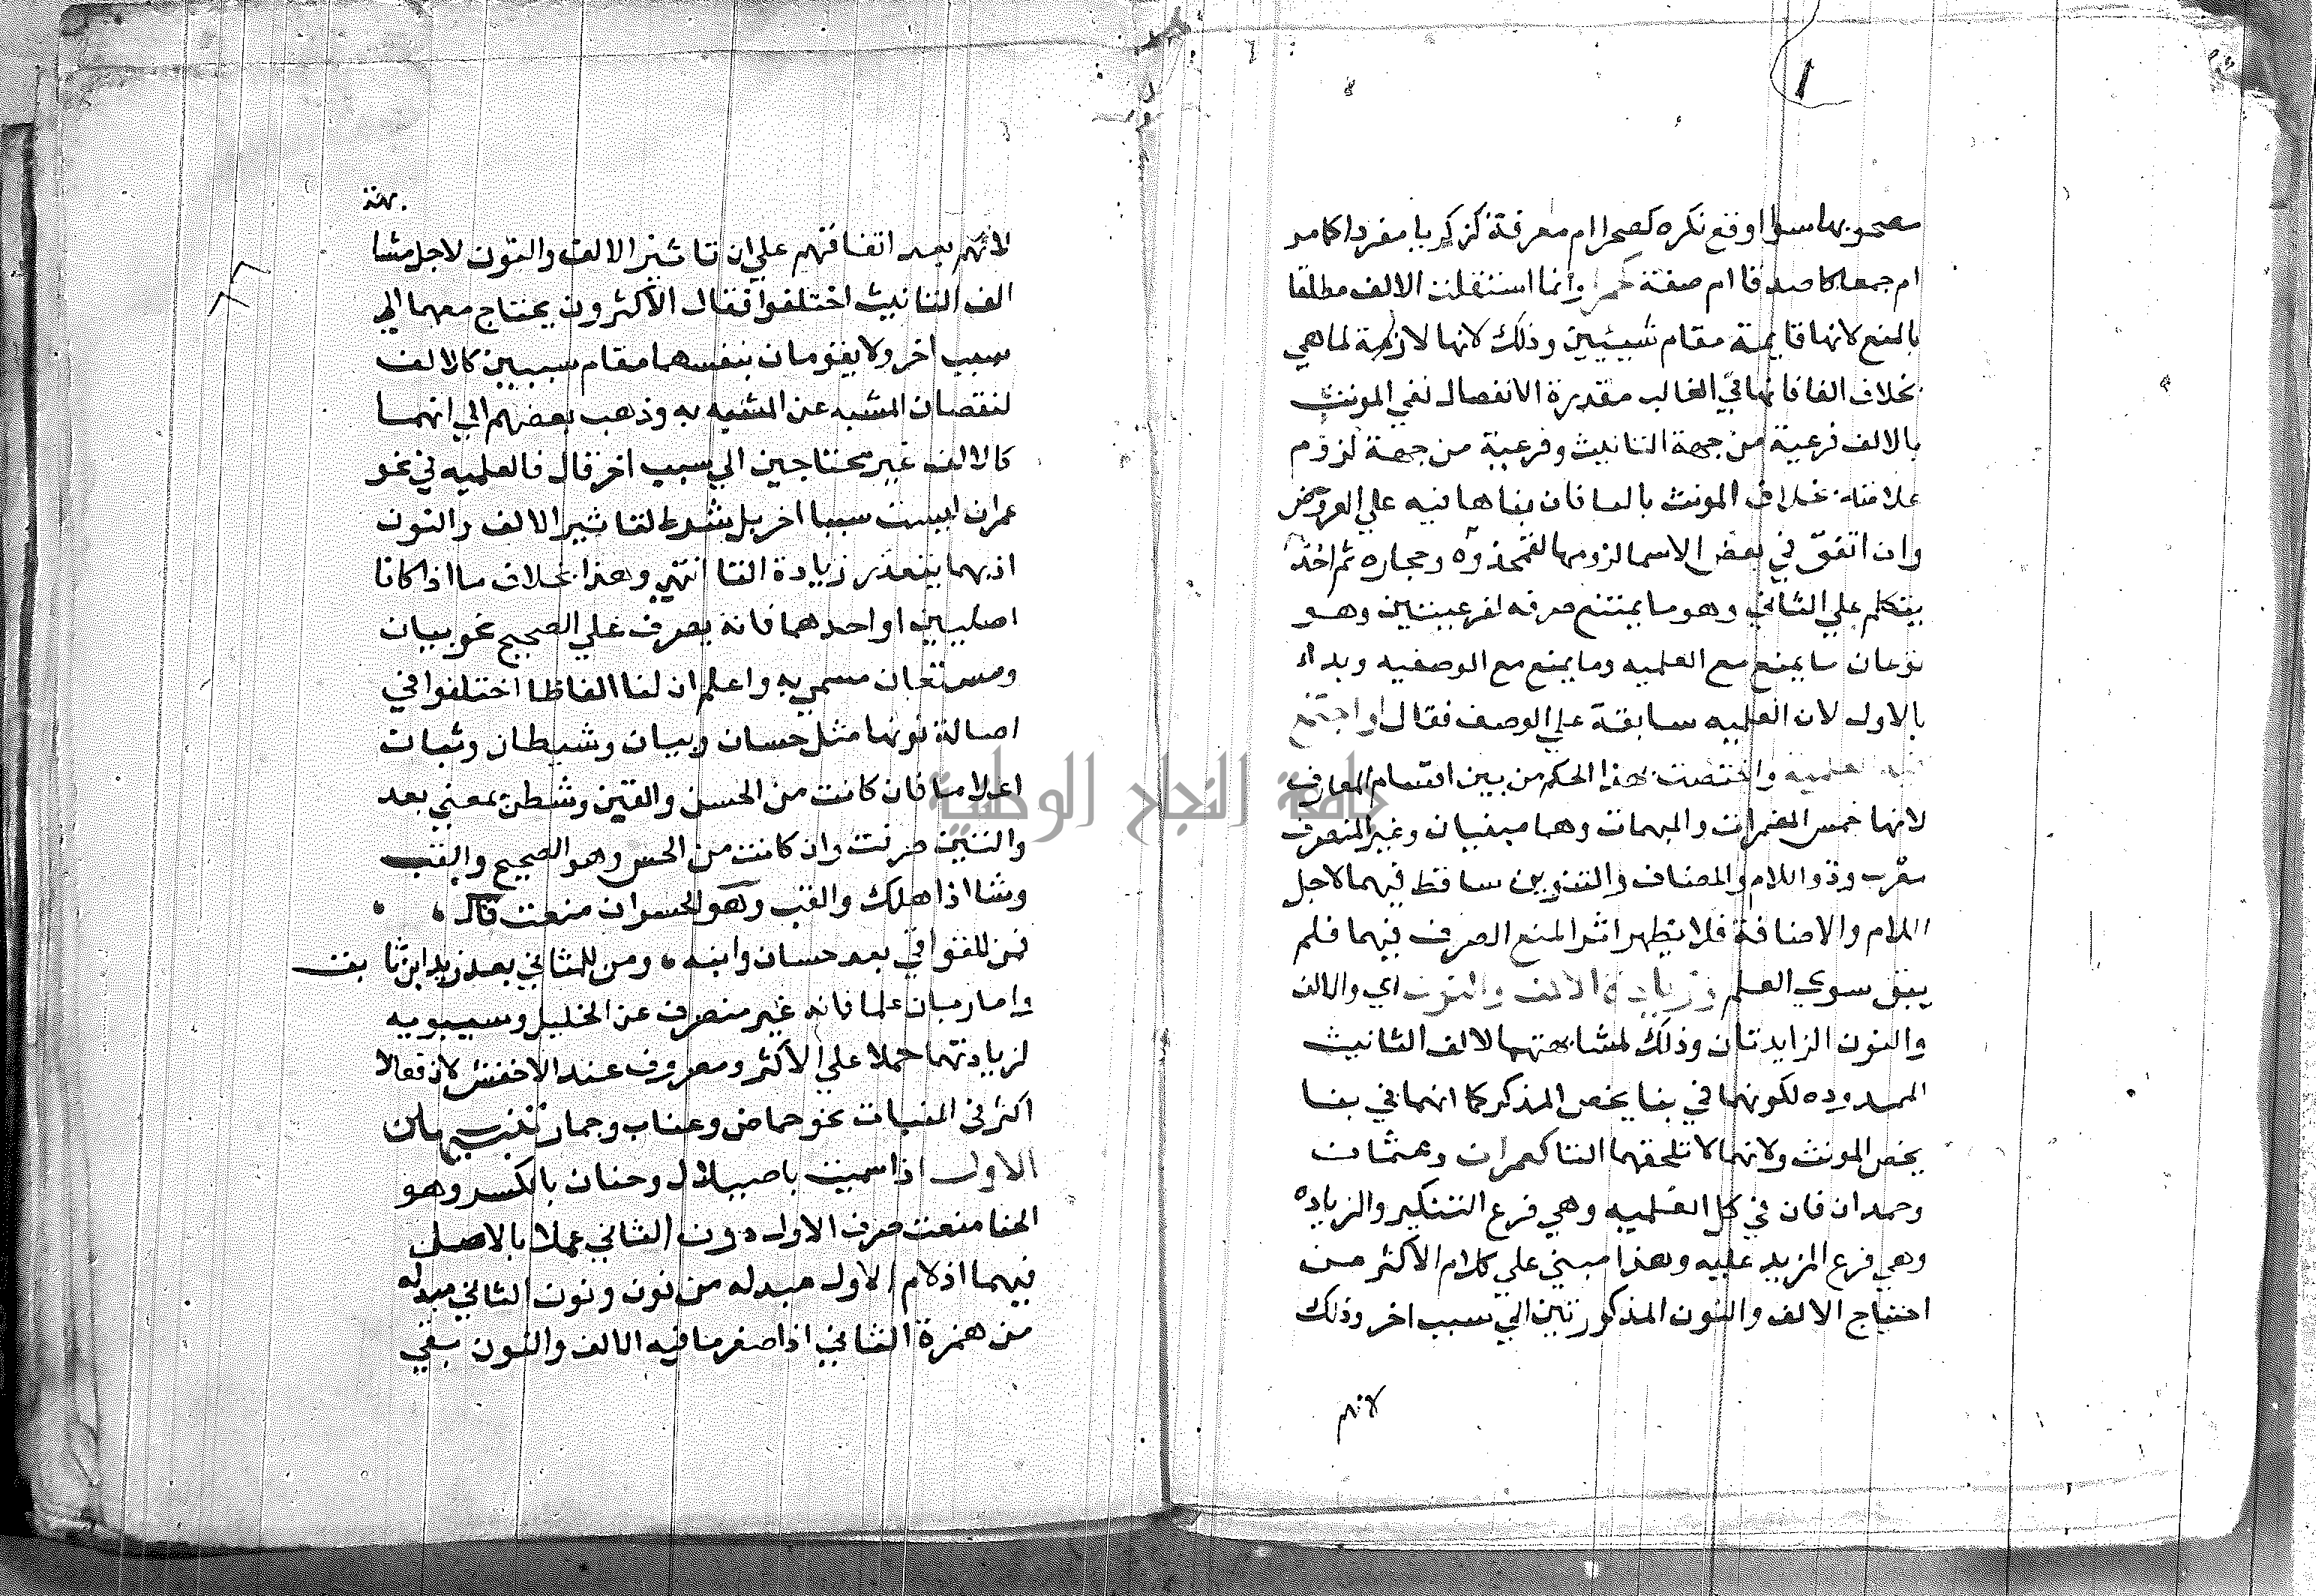 مصحوبها سوا وقع نكره كصحرا ام معرفة كزكريا مفردا كامر
ام جمعا كاصدقا ام صفة كحمرا وانما استقلت الالف مطلقا
بالمنع لانها قايمة مقام شيئين وذلك لانها لازمة لما هي
بخلاف التا فانها في الغالب مقدرة الانفصال ففي المونث
بالالف فرعية من جهة التانيث وفرعية من جهة لزوم
علامته بخلاف المونث بالتا فان بناها فيه علي العروض
وان اتفق في بعض الاسما لزومها كقمحذوه وحجاره ثم اخذ
يتكلم علي الثاني وهو ما يمتنع صرفه لفرعيتين وهو
نوعان ما يمنع مع العلميه وما يمنع مع الوصفيه وبداء
بالاول لان العلميه سابقة علي الوصف فقال او اجتمع
فيه العلمية واختصت بهذا الحكم من بين اقسام المعارف
لانها خمس المضمرات والمبهمات وهما مبنيان وغير المنصرف
معرب وذو اللام والمضاف والتنوين ساقط فيهما لاجل
اللام والاضافة فلا يظهر اثر المنع الصرف فيهما فلم
يبق سوي العلم وزيادة الالف والنون اي والالف
والنون الزايدتان وذلك لمشابهتهما لالف التانيث
الممدوده لكونهما في بنا يخص المذكر كما انهما في بنا
يخص المونث ولانهما لا تلحقهما التا كعمران وعثمان
وحمدان فان في كل العلميه وهي فرع التنكير والزياده
وهي فرع المزيد عليه وهذا مبني علي كلام الاكثر من
احتياج الالف والنون المذكورتين الي سبب اخر وذلك
لانهم
لانهم بعد اتفاقهم علي ان تاثير الالف والنون لاجل مشا
بهته
الف التانيث اختلفوا فقال الاكثرون يحتاج معهما الي
سبب اخر ولا يقومان بنفسهما مقام سببين كالالف
لنقصان المشبه عن المشبه به وذهب بعضهم الي انهما
كالالف غير محتاجين الي سبب اخر قال فالعلميه في نحو
عمران ليست سببا اخر بل شرط لتاثير الالف والنون
اذ بهما يتعذر زيادة التا انتهي وهذا بخلاف ما اذا كانا
اصليين او احدهما فانه يصرف علي الصحيح نحو بيان
ومستعان مسمي به واعلم ان لنا الفاظا اختلفوا في
اصالة نونها مثل حسان وبيان وشيطان وتبان
اعلاما فان كانت من الحسن والقين وشطن بمعني بعد
والتين صرفت وان كانت من الحس وهو الصحيح والقب
وشا اذا هلك والقب وهو الخسران منعت قال
فمن للقوافي بعد حسان وابنه ومن للمثاني بعد زيد ابن ثابت
واما رمان علما فانه غير منصرف عن الخليل وسيبويه
لزيادتهما حملا علي الاكثر ومصروف عند الاخفش لان فعالا
اكثر في النبات نحو حماض وعناب وجمار تنبيهان
الاول اذا سميت باصيلال وحنان بالكسر وهو
الحنا منعت صرف الاول دون الثاني عملا بالاصل
فيهما اذ لام الاول مبدله من نون ونون الثاني مبدله
من همزة الثاني اذا صغر ما فيه الالف والنون بقي
جامعة النجاح الوطنية